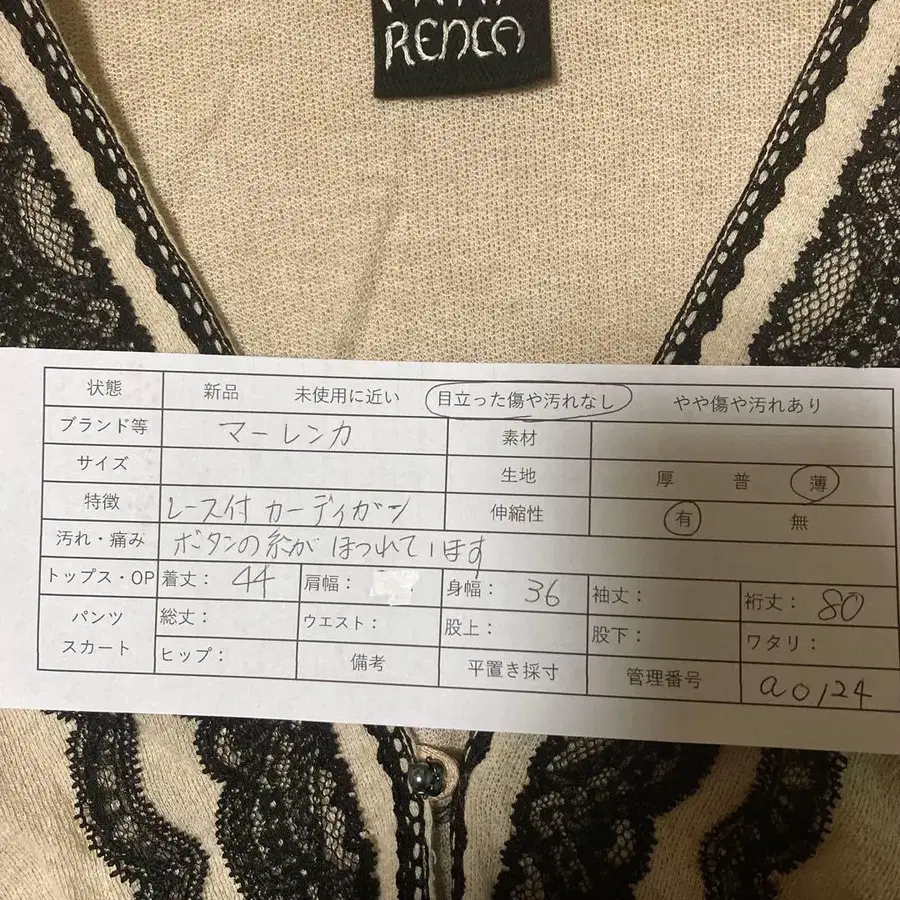 RENCA
状態 新品 未使用に近い 目立った傷や汚れなし やや傷や汚れあり
ブランド等 マーレンカ 素材
サイズ 生地 厚 普 薄
特徴 レース付 カーディガン 伸縮性 有 無
汚れ・痛み ボタンの糸が ほつれています
トップス・OP 着丈: 44 肩幅: 身幅: 36 袖丈: 裄丈: 80
パンツ スカート 総丈: ウエスト: 股上: 股下: ワタリ:
ヒップ: 備考 平置き採寸 管理番号 a0124